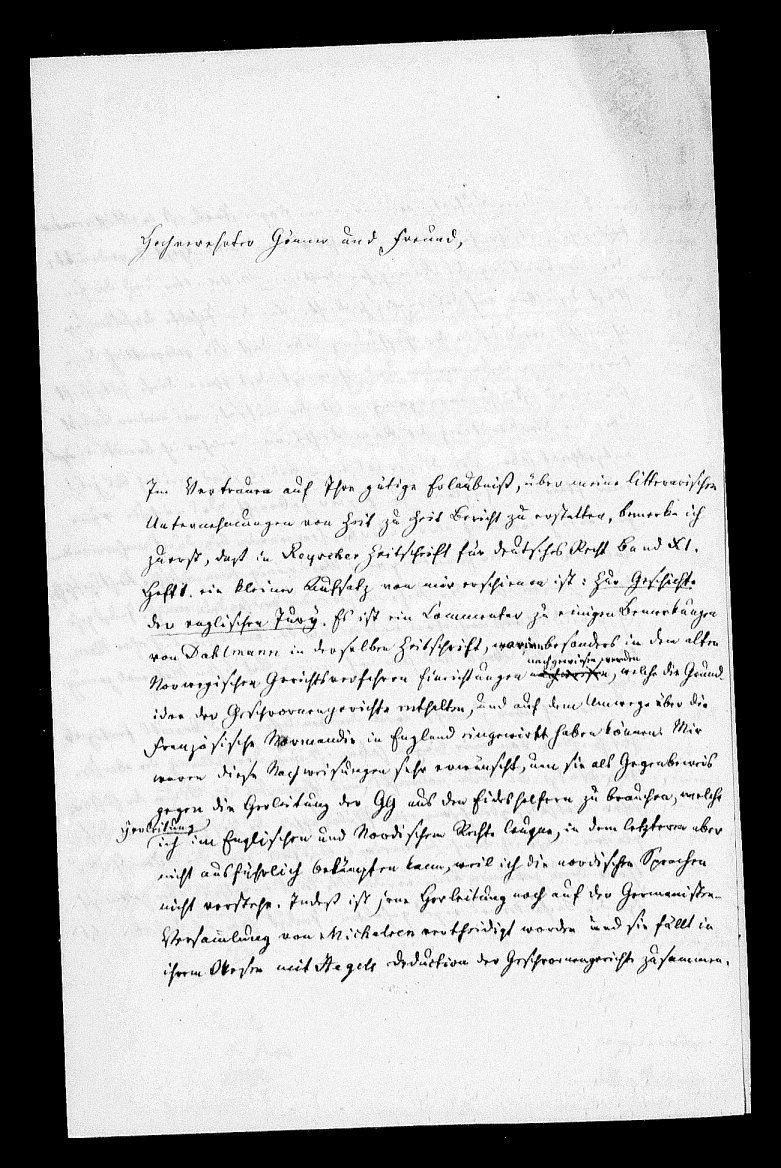 Hochverehrter Gönner und Freund,
Im Vertrauen auf Ihre gütige Erlaubniß, über meine litterarischen
Unternehmungen von Zeit zu Zeit Bericht zu erstatten, bemerke ich
zuerst, daß in Reyscher Zeitschrift für deutsches Recht Band XI.
Heft 1. ein kleiner Aufsatz von mir erschienen ist: Zur Geschichte
der englischen Jury. Es ist ein Commentar zu einigen Bemerkungen
von Dahlmann in derselben Zeitschrift, worin besonders in dem alten
Norwegischen Gerichtsverfahren Einrichtungen nachgewiesen werden, welche die Grund
idee der Geschwornengerichte enthalten, und auf dem Umwege über die
Französische Normandie in England eingewirkt haben können. Mir
waren diese Nachweisungen sehr erwünscht, um sie als Gegenbeweis
gegen die Herleitung der GG aus den Eideshelfern zu brauchen, welche
Herleitung
ich im Englischen und Nordischen Rechte leugne, in dem letzteren aber
nicht ausführlich bekämpfen kann, weil ich die nordischen Sprachen
nicht verstehe. Indeß ist jene Herleitung noch auf der Germanisten-
Versamlung von Michelsen vertheidigt worden und sie fällt in
ihrem Wesen mit Hegels Deduction der Geschwornengerichte zusammen.